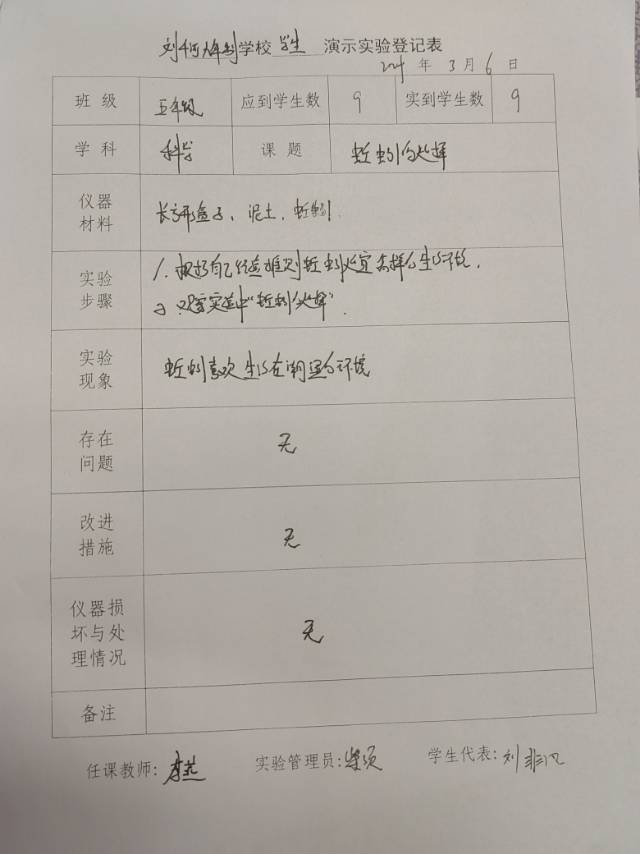 学校 学生 演示实验登记表
年 3 月 6 日
班级 五年级 应到学生数 9 实到学生数 9
学科 科学 课题 蚯蚓的选择
仪器
材料
长方形盒子、泥土、蚯蚓
实验
步骤
1. 根据自己经验推测蚯蚓 怎样的生活环境.
2 实验中"蚯蚓的选择".
实验
现象
蚯蚓喜欢生活在潮湿的环境
存在
问题
无
改进
措施
无
仪器损
坏与处
理情况
无
备注
任课教师: 实验管理员: 学生代表:刘非凡